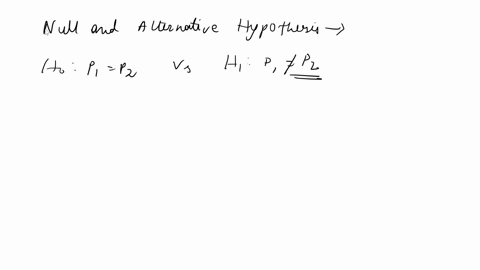 Null and Alternative Hypothesis →
H₀ : P₁ = P₂ Vs H₁ : P₁ ≠ P₂